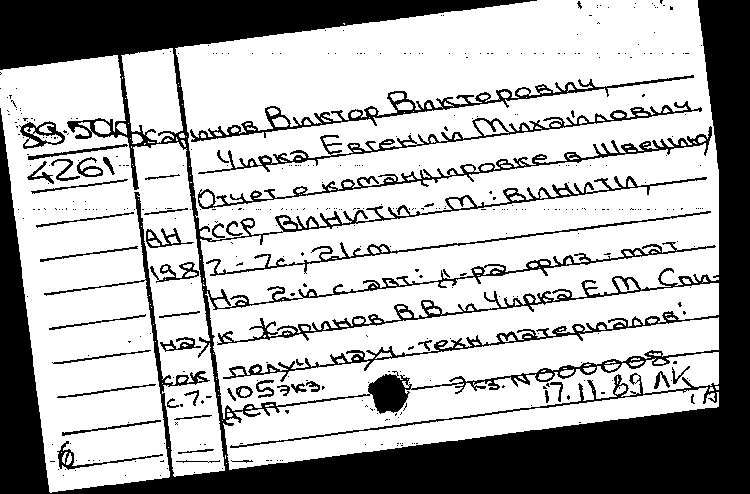 Жаринов, Виктор Викторович,
4261 Чирка, Евгений Михайлович.
Отчет о командировке в Швецию/
АН СССР, ВИНИТИ. - М.: ВИНИТИ,
1987. - 7с.; 21cm
На 2-й с. авт.: д-ра физ. - мат
наук Жаринов В.В и Чирка Е.М. Спи-
сок получ. науч.-техн. материалов:
с.7.- 105экз. Экз. N 000008.
ДСП. 17.11.89 ЛК
6